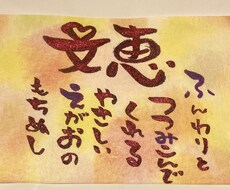 文恵
ふんわりと
つつみこんで
くれる
やさしい
えがおの
もちぬし